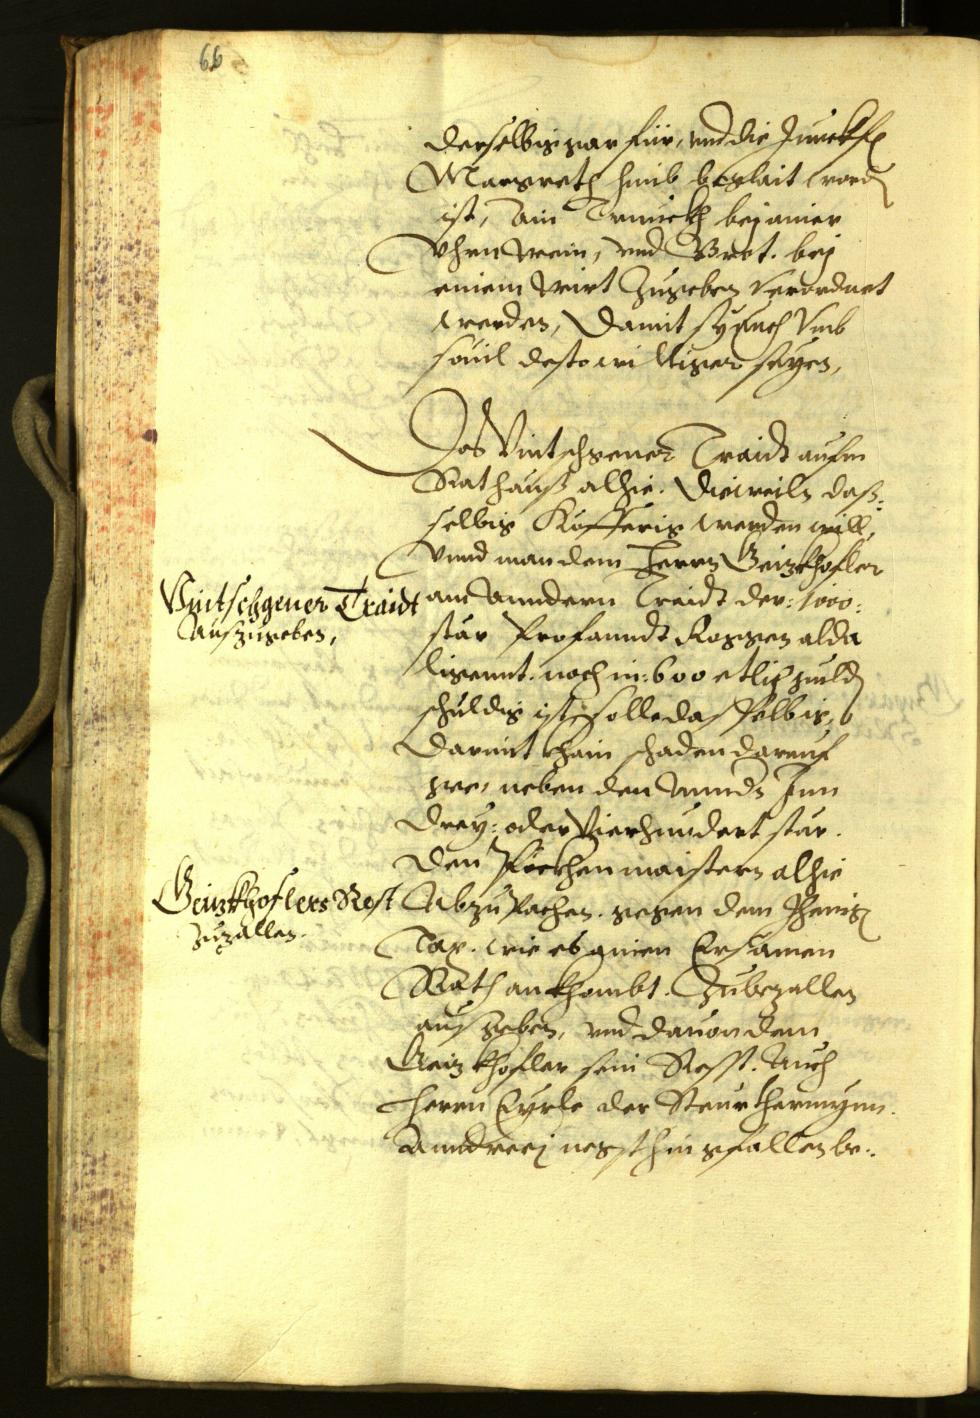 66
derselbig gar für, und die Junckf
Margreth hinib beglait word
ist, Ain Trunckh bej ainer
Yhrn Wein, und Brot. bej
einem Wirt Zugeben verordnet
werden, Damit sy sich umb
souil desto williger seyen,
Das Vintschgener Traidt aufm
Rathauß alhie. Dieweiln daß:
selbig Kofferig werden will,
Unnd man dem Herrn Geizkhofler
am Anndern Traidt der: 1000:
star Profanndt Roggen alda
ligennt. noch in: 600 etlich guld
schuldig ist, solle dasselbig,
Darmit khain schaden darauf
gee, neben den Annd Inn
Drey: oder Vierhundert star.
Den Pöckhenmaistern alhie
Abzupachen. gegen dem Phenig
Tax. wie es ainen Ersamen
Rath ankhombt. Zubezallen
ausgeben, und dauon dem
Geizkhofler sein Resst. Auch
Herrn Eyrle der Steur thermynn.
Anndreej negsthin gfallen be:
Vintschgener Traidt
Auszugeben,
Geizkhoflers Rest
zuzallen.